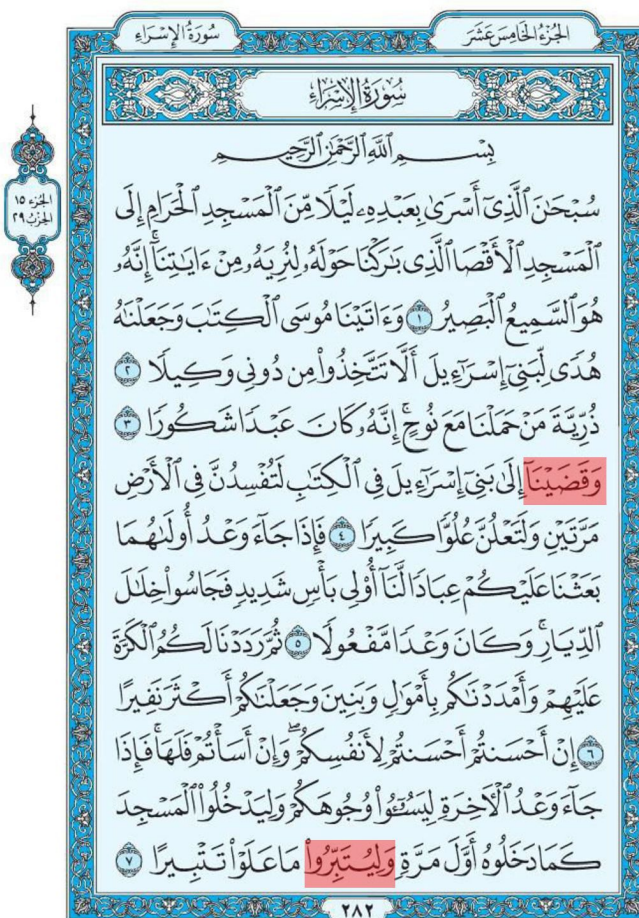 سُورَةُ الإِسْرَاءِ
الجُزْءُ الخَامِسَ عَشَرَ
سُورَةُ الإِسْرَاءِ
بِسْمِ ٱللَّهِ ٱلرَّحْمَٰنِ ٱلرَّحِيمِ
الجزء ١٥
الحزب ٢٩
سُبْحَٰنَ ٱلَّذِىٓ أَسْرَىٰ بِعَبْدِهِۦ لَيْلًا مِّنَ ٱلْمَسْجِدِ ٱلْحَرَامِ إِلَى
ٱلْمَسْجِدِ ٱلْأَقْصَا ٱلَّذِى بَٰرَكْنَا حَوْلَهُۥ لِنُرِيَهُۥ مِنْ ءَايَٰتِنَآ إِنَّهُۥ
هُوَ ٱلسَّمِيعُ ٱلْبَصِيرُ ١ وَءَاتَيْنَا مُوسَى ٱلْكِتَٰبَ وَجَعَلْنَٰهُ
هُدًى لِّبَنِىٓ إِسْرَٰٓءِيلَ أَلَّا تَتَّخِذُوا۟ مِن دُونِى وَكِيلًا ٢
ذُرِّيَّةَ مَنْ حَمَلْنَا مَعَ نُوحٍ ۚ إِنَّهُۥ كَانَ عَبْدًا شَكُورًا ٣
وَقَضَيْنَآ إِلَىٰ بَنِىٓ إِسْرَٰٓءِيلَ فِى ٱلْكِتَٰبِ لَتُفْسِدُنَّ فِى ٱلْأَرْضِ
مَرَّتَيْنِ وَلَتَعْلُنَّ عُلُوًّا كَبِيرًا ٤ فَإِذَا جَآءَ وَعْدُ أُولَىٰهُمَا
بَعَثْنَا عَلَيْكُمْ عِبَادًا لَّنَآ أُو۟لِى بَأْسٍ شَدِيدٍ فَجَاسُوا۟ خِلَٰلَ
ٱلدِّيَارِ ۚ وَكَانَ وَعْدًا مَّفْعُولًا ٥ ثُمَّ رَدَدْنَا لَكُمُ ٱلْكَرَّةَ
عَلَيْهِمْ وَأَمْدَدْنَٰكُم بِأَمْوَٰلٍ وَبَنِينَ وَجَعَلْنَٰكُمْ أَكْثَرَ نَفِيرًا
٦ إِنْ أَحْسَنتُمْ أَحْسَنتُمْ لِأَنفُسِكُمْ ۖ وَإِنْ أَسَأْتُمْ فَلَهَا ۚ فَإِذَا
جَآءَ وَعْدُ ٱلْءَاخِرَةِ لِيَسُۥٓـُٔوا۟ وُجُوهَكُمْ وَلِيَدْخُلُوا۟ ٱلْمَسْجِدَ
كَمَا دَخَلُوهُ أَوَّلَ مَرَّةٍ وَلِيُتَبِّرُوا۟ مَا عَلَوْا۟ تَتْبِيرًا ٧
٢٨٢